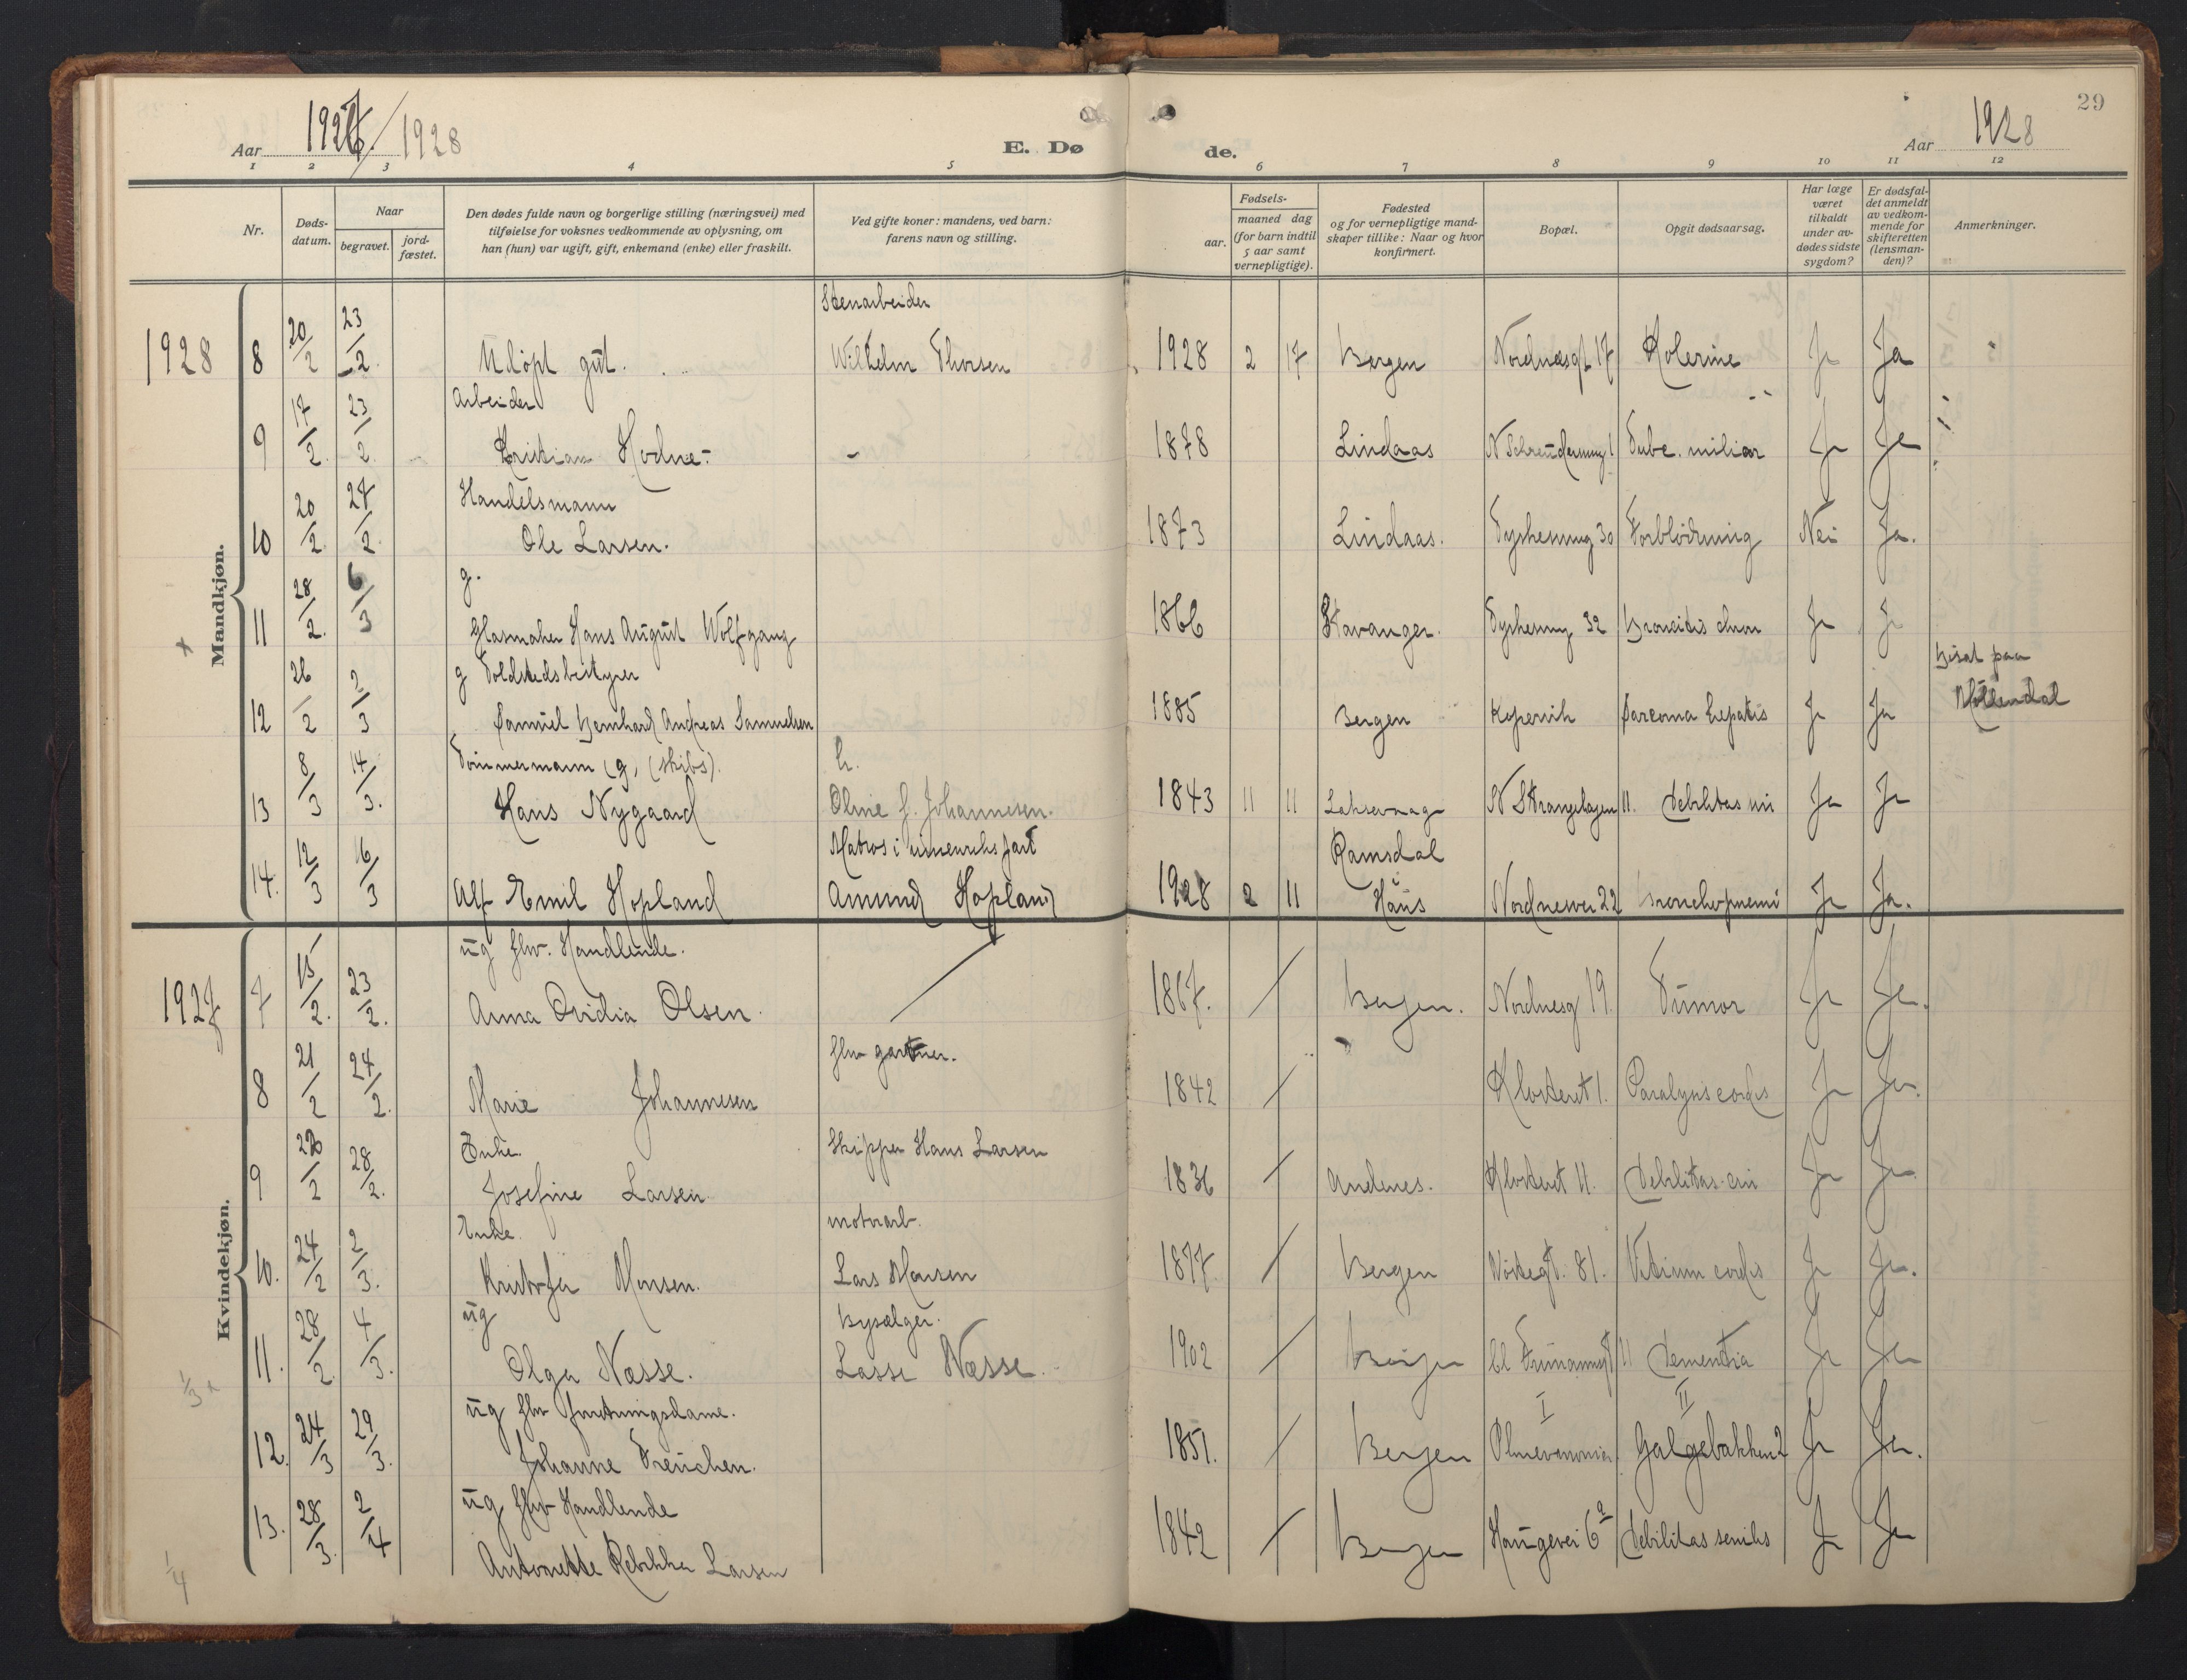 Aar 1927/1928
E. Dø
de.
Aar 1928
29
1 2 3 4 5 6 7 8 9 10 11 12
Nr.
Døds-
datum.
Naar
begravet.
jord-
fæstet.
Den dødes fulde navn og borgerlige stilling (næringsvei) med
tilføielse for voksnes vedkommende av oplysning, om
han (hun) var ugift, gift, enkemand (enke) eller fraskilt.
Ved gifte koner: mandens, ved barn:
farens navn og stilling.
Fødsels-
aar.
maaned dag
(for barn indtil
5 aar samt
vernepligtige).
Fødested
og for vernepligtige mand-
skaper tillike: Naar og hvor
konfirmert.
Bopæl.
Opgit dødsaarsag.
Har læge
været
tilkaldt
under av-
dødes sidste
sygdom?
Er dødsfal-
det anmeldt
av vedkom-
mende for
skifteretten
(lensman-
den)?
Anmerkninger.
Mandkjøn.
Stenarbeider
1928 8 20/2 23/2 Udøpt gut. Wilhelm Thorsen 1928 2 17 Bergen Nordnesgt 17 Kolerine Ja Ja
Arbeider
9 17/2 23/2 Kristian Hodne - 1878 Lindaas Tube. miliar Ja Ja
Handelsmann
10 20/2 27/2 Ole Larsen. 1873 Lindaas. 30 Forblødning Nei Ja.
g.
11 28/2 6/3 Glasmaker Hans August Wolfgang 1866 Stavanger. 32 Broncitis chron Ja Ja
g Toldstedsbestyrer
Bisat paa
12 26/2 2/3 Samuel Bernhard Andreas Samuelsen 1885 Bergen Kopervik Sarcoma hepatis Ja Ja Møllendal
Tømmermann (g, (skibs). h.
13 8/3 14/3. Hans Nygaard Oline f. Johannesen. 1843 11 11 Laksevaag N Strangehagen 11. debilitas Ja Ja
Matros i innenriks fart Ramsdal
14. 12/3 16/3 Alf Emil Hopland Amund Hopland 1928 2 11 Haus Nordnesvei 22 Ja Ja.
Kvindekjøn.
ug fhv. Handlende.
1927 7 15/2. 23/2. Anna Ovidia Olsen. 1867. Bergen. Nordnesg 19. Tumor Ja Ja.
fhv gartner.
8 21/2 24/2. Marie Johannesen 1842 Klosteret 1. Paralysis cordis Ja Ja.
Enke. Skipper Hans Larsen
9 2/2 28/2. Josefine Larsen. 1836 Andenes. Klosteret 11. debilitas Ja Ja
Enke. motorarb.
10. 24/2 2/3. Monsen. Lars Monsen 1877. Bergen Nøstegt. 81. Vitium cordis Ja Ja.
ug Bysælger.
11. 28/2. 4/3. Olga Næsse. Lasse Næsse. 1902 Bergen 11 dementia Ja Ja
1/3
ug fhv forretningsdame. I II
12. 24/3 29/3. Johanne Treuchen. 1851. Bergen Galgebakken 2 Ja Ja.
ug fhv Handlende
13. 28/3. 2/4 Antonette Rebekka Larsen 1842 Bergen Haugevei 6a debilitas senilis Ja Ja
1/4